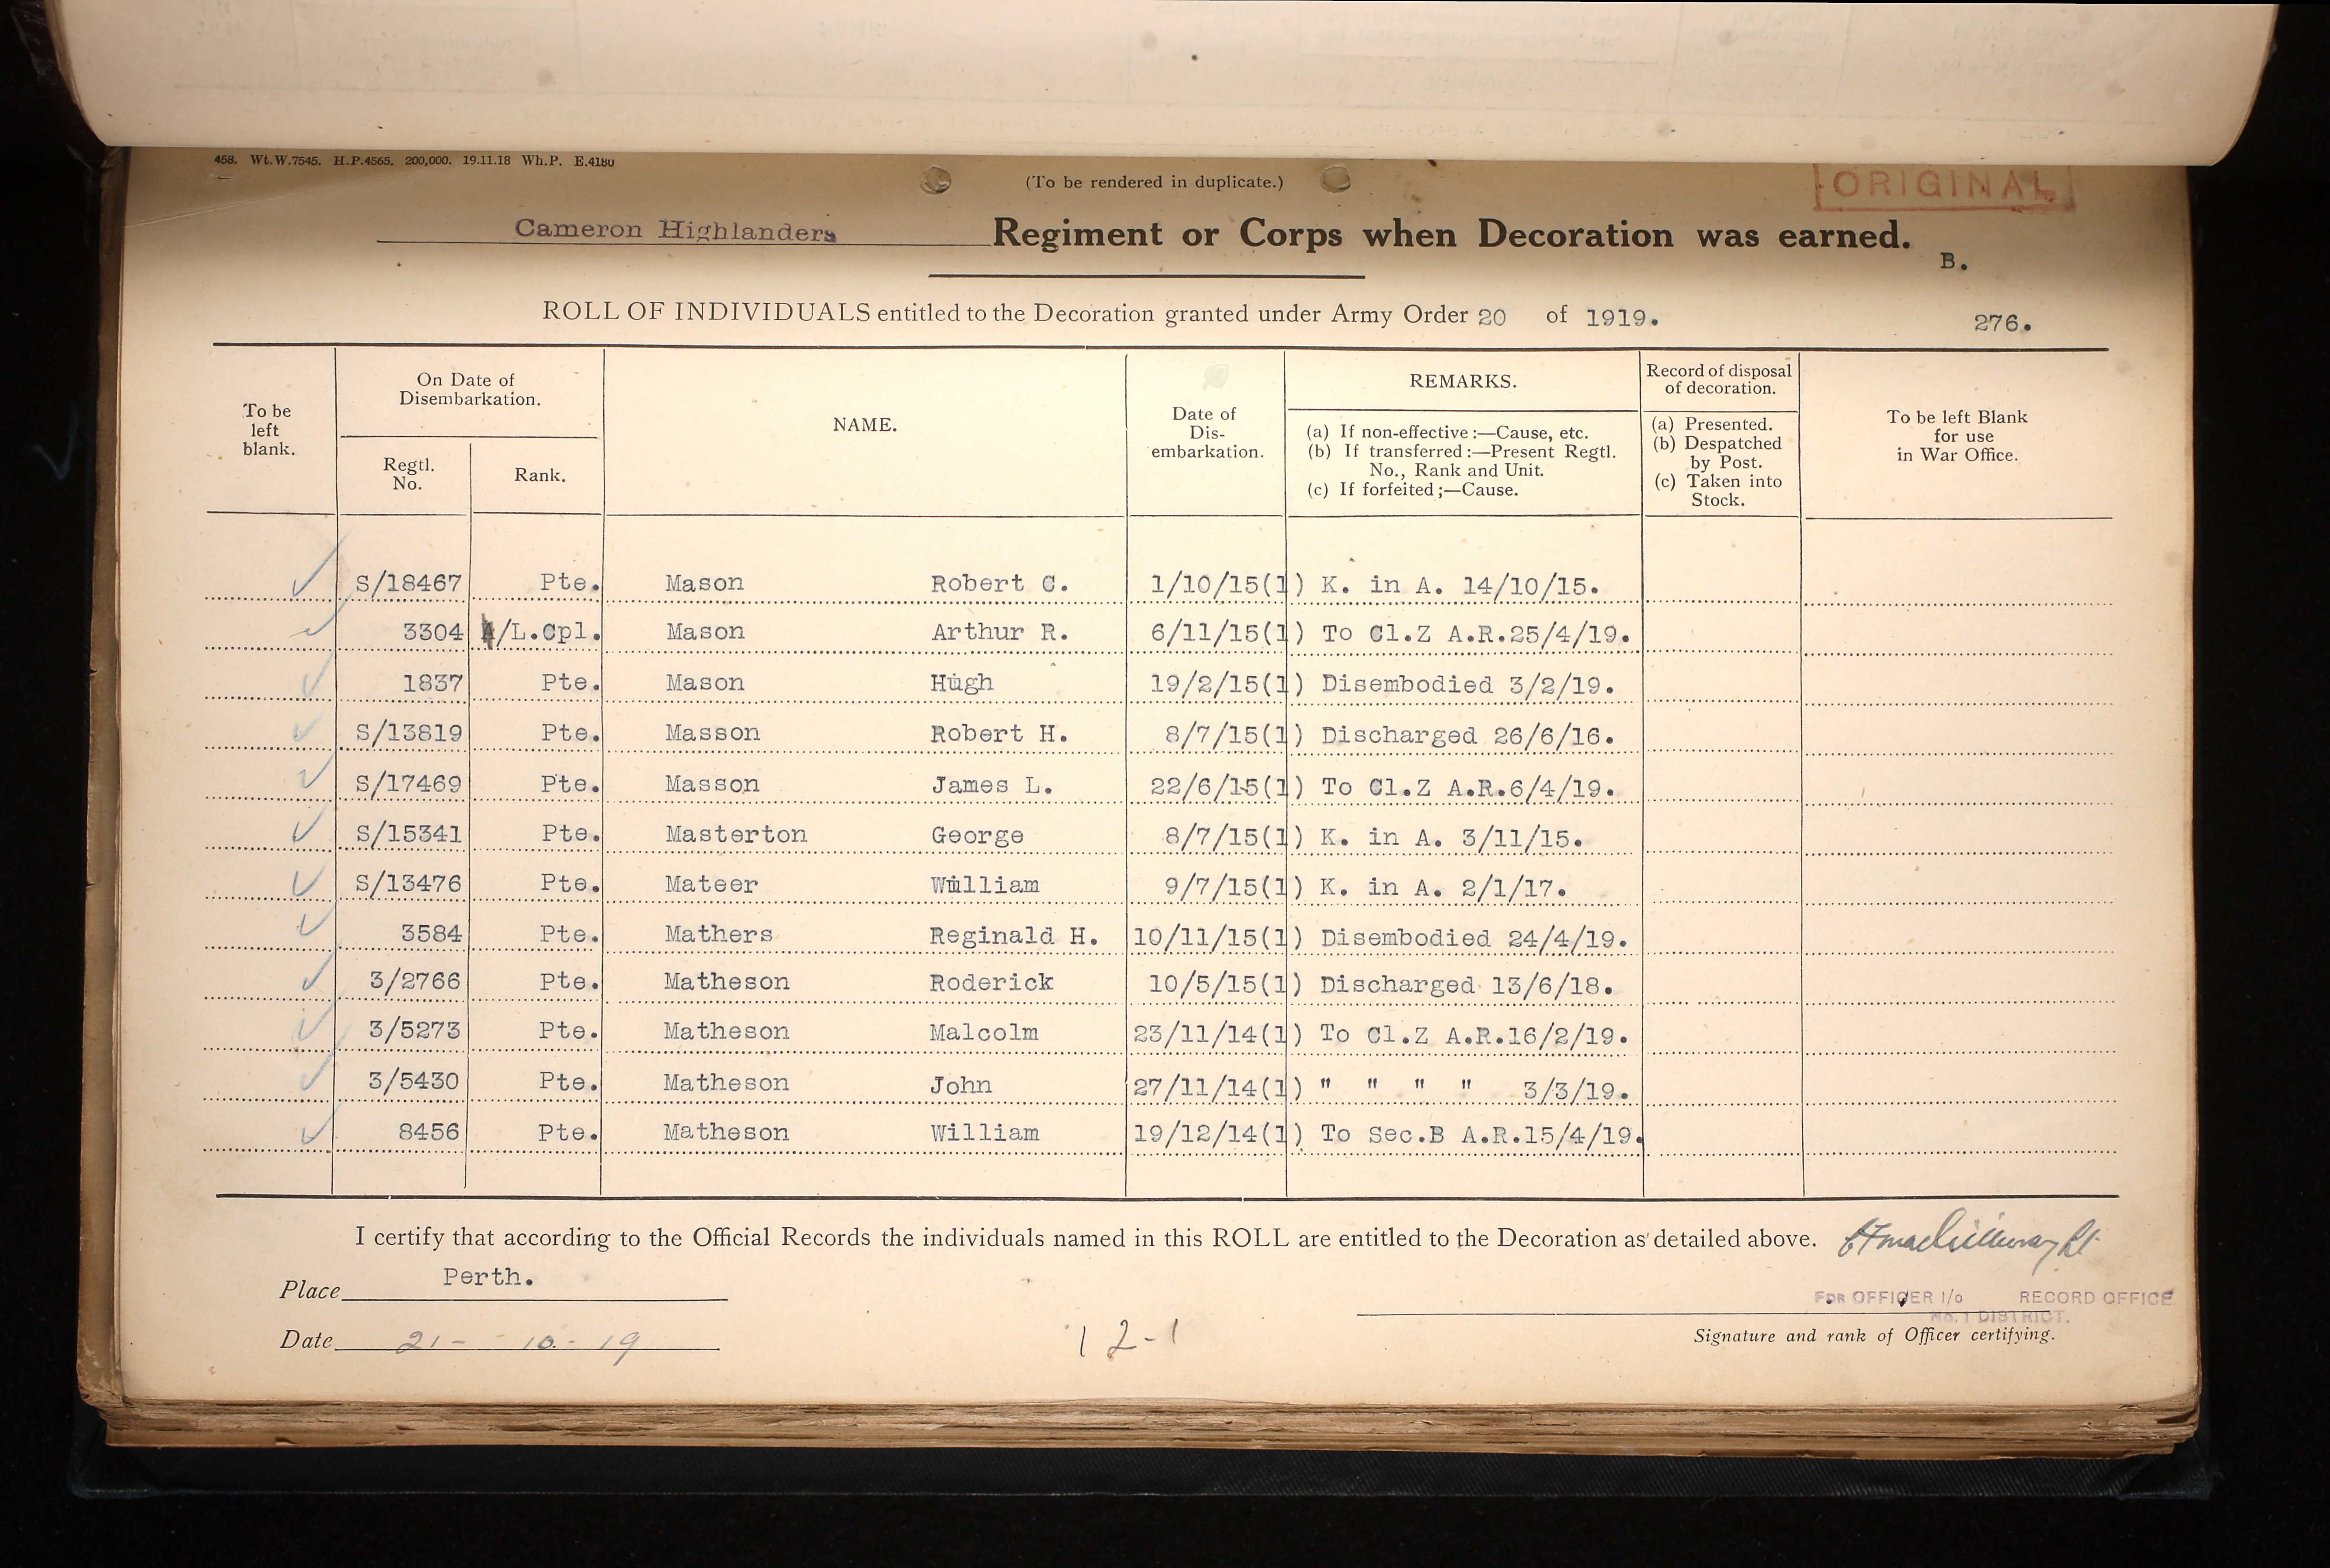 458. Wt.W.7545. H.P.4565. 200,000. 19.11.18 Wh.P. E.4180
(To be rendered in duplicate.)
ORIGINAL
Cameron Highlanders Regiment or Corps when Decoration was earned.
B.
ROLL OF INDIVIDUALS entitled to the Decoration granted under Army Order 20 of 1919.
276.
To be left blank.
On Date of Disembarkation.
Regtl. No.
Rank.
NAME.
Date of Dis-embarkation.
REMARKS.
(a) If non-effective :—Cause, etc.
(b) If transferred :—Present Regtl. No., Rank and Unit.
(c) If forfeited ;—Cause.
Record of disposal of decoration.
(a) Presented.
(b) Despatched by Post.
(c) Taken into Stock.
To be left Blank for use in War Office.
S/18467 Pte. Mason Robert C. 1/10/15(1) K. in A. 14/10/15.
3304 A/L.Cpl. Mason Arthur R. 6/11/15(1) To Cl.Z A.R.25/4/19.
1837 Pte. Mason Hugh 19/2/15(1) Disembodied 3/2/19.
S/13819 Pte. Masson Robert H. 8/7/15(1) Discharged 26/6/16.
S/17469 Pte. Masson James L. 22/6/15(1) To Cl.Z A.R.6/4/19.
S/15341 Pte. Masterton George 8/7/15(1) K. in A. 3/11/15.
S/13476 Pte. Mateer William 9/7/15(1) K. in A. 2/1/17.
3584 Pte. Mathers Reginald H. 10/11/15(1) Disembodied 24/4/19.
3/2766 Pte. Matheson Roderick 10/5/15(1) Discharged 13/6/18.
3/5273 Pte. Matheson Malcolm 23/11/14(1) To Cl.Z A.R.16/2/19.
3/5430 Pte. Matheson John 27/11/14(1) " " " " 3/3/19.
8456 Pte. Matheson William 19/12/14(1) To Sec.B A.R.15/4/19.
I certify that according to the Official Records the individuals named in this ROLL are entitled to the Decoration as detailed above.
Place Perth.
FOR OFFICER I/o RECORD OFFICE
No. 1 DISTRICT.
Date 21 - 10 - 19
12-1
Signature and rank of Officer certifying.